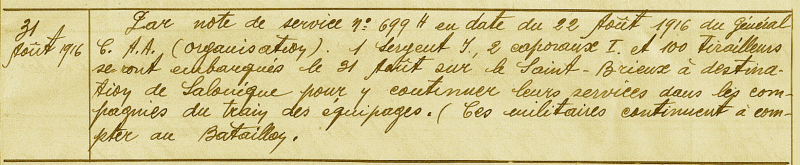 31
Août 1916
Par note de service n° 699 H en date du 22 Août 1916 du général
C. A.A. (Organisation). 1 Sergent I, 2 caporaux I. et 100 tirailleurs
seront embarqués le 31 Août sur le Saint-Brieux à destina-
tion de Salonique pour y continuer leurs services dans les com-
pagnies du train des équipages. (Ces militaires continuent à com-
pter au Bataillon.